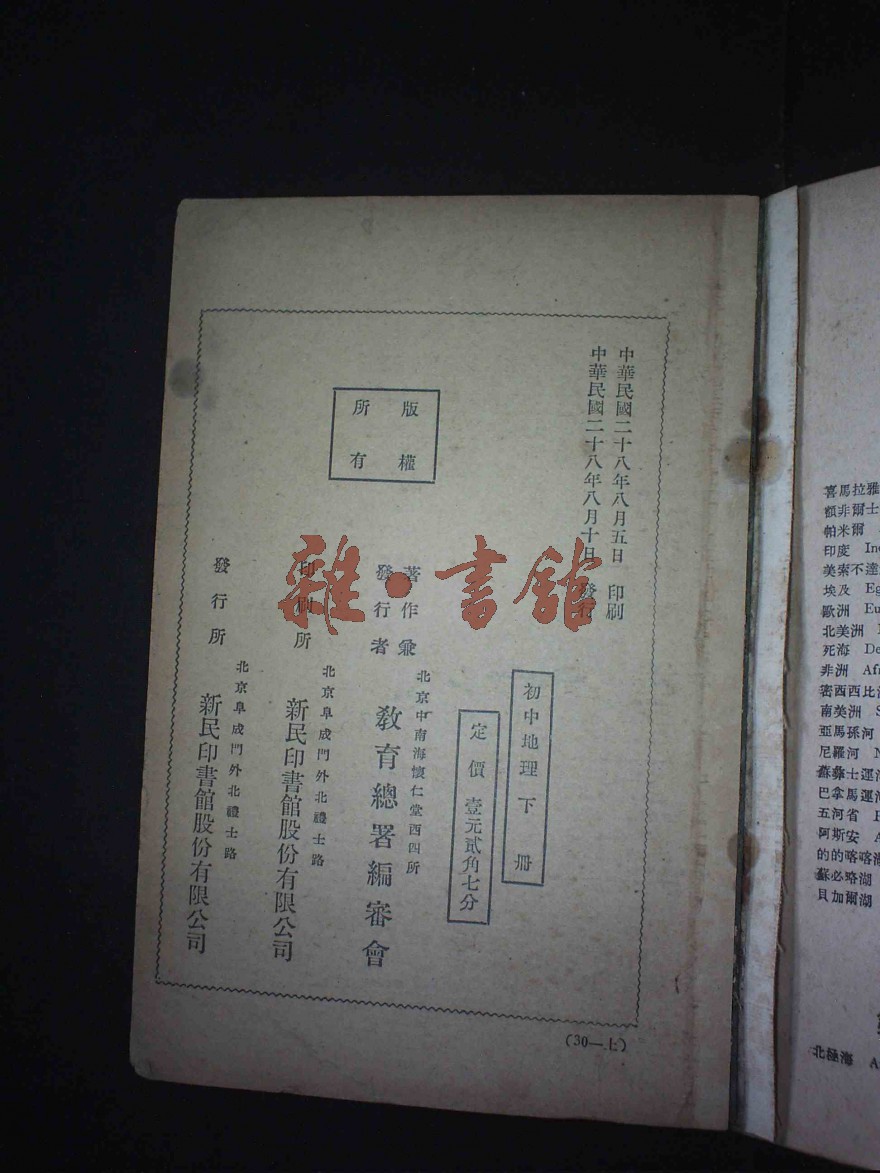 中華民國二十八年八月五日 印刷
中華民國二十八年八月十日 發行
初中地理下冊
定價 壹元貳角七分
版權
所有
著作兼
發行者
北京中南海懷仁堂西四所
教育總署編審會
印刷所
北京阜成門外北禮士路
新民印書館股份有限公司
發行所
北京阜成門外北禮士路
新民印書館股份有限公司
(30—上)
雜·書館
喜馬拉雅
額非爾士
帕米爾
印度 In
美索不達
埃及 Eg
歐洲 Eu
北美洲
死海 De
非洲 Af
密西西比
南美洲 S
亞馬孫河
尼羅河 N
蘇彝士運
巴拿馬運
五河省
阿斯安 A
的的喀喀湖
蘇必略湖
貝加爾湖
北極海 A